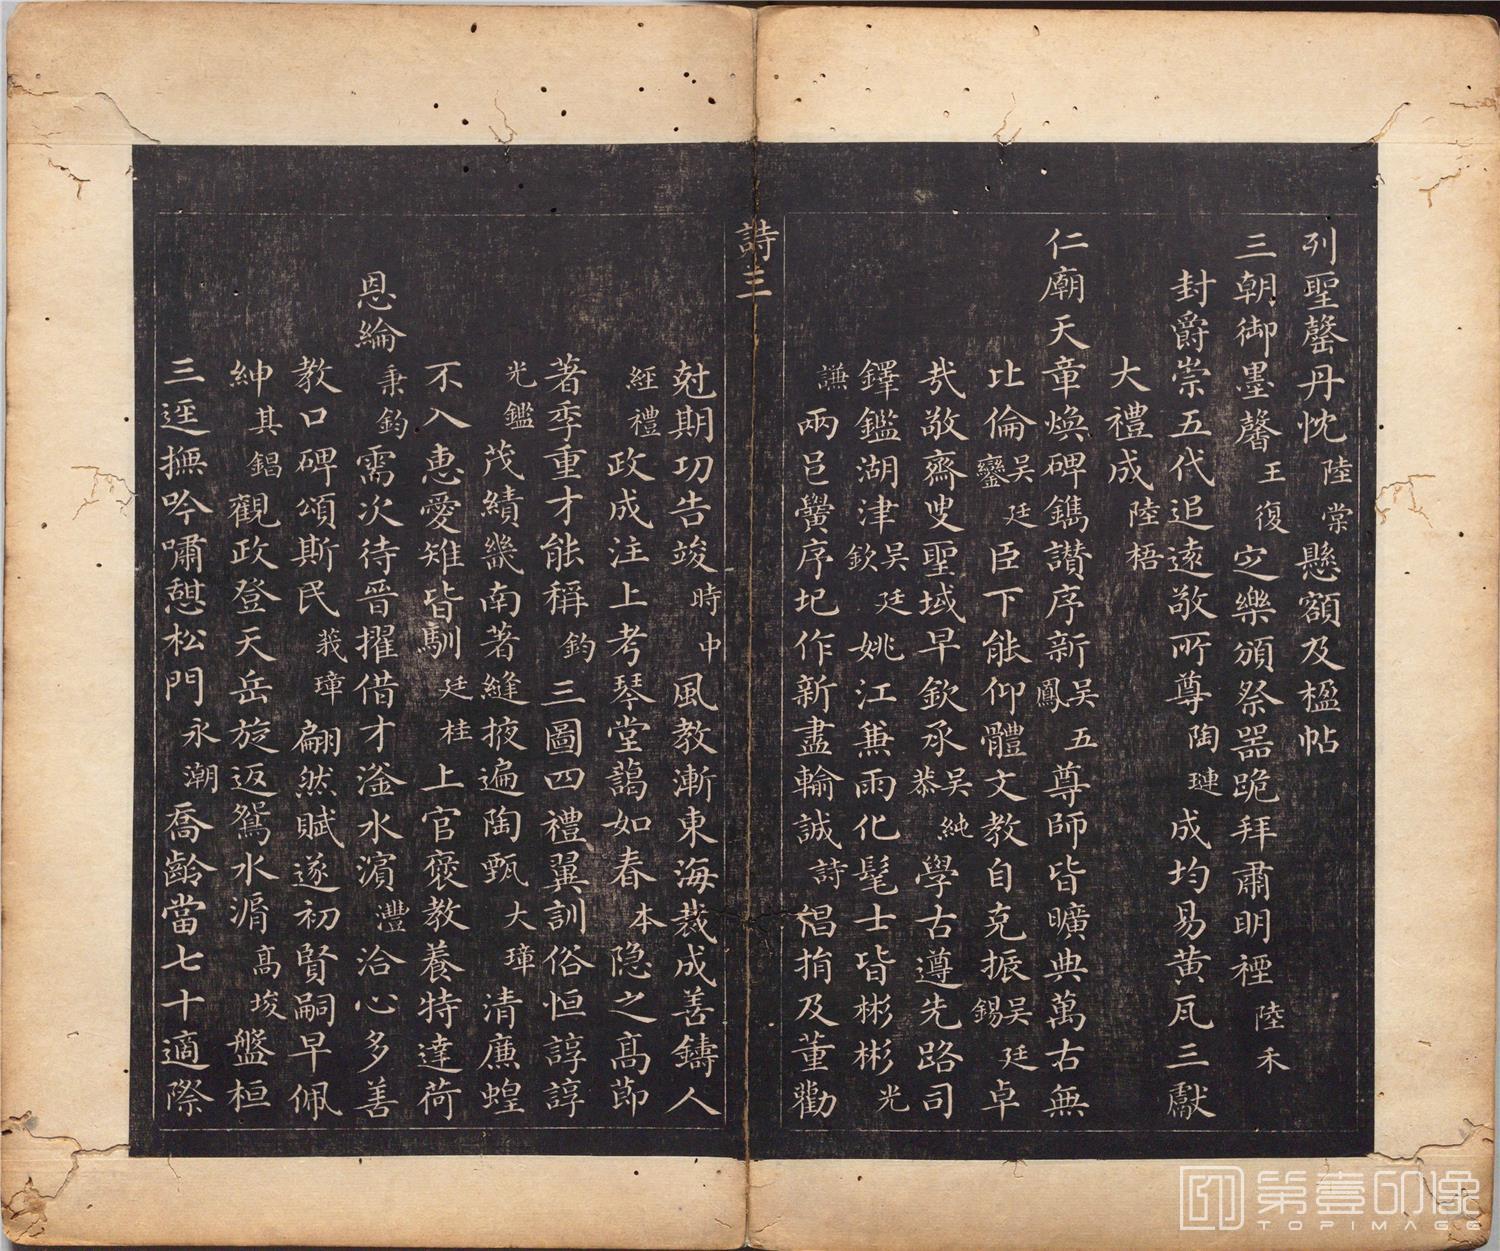 列聖罄丹忱陸棠懸額及楹帖
三朝御墨馨王復定樂頒祭器跪拜肅明禋陸禾
封爵崇五代追遠敬所尊陶璉成均易黃瓦三獻
大禮成陸梧
仁廟天章煥碑鐫讃序新吳鳳五尊師皆曠典萬古無
比倫吳鑾廷臣下能仰體文教自克振吳錫廷卓
哉敬齋叟聖域早欽承吳恭純學古遵先路司
鐸鑑湖津吳欽廷姚江兼雨化髦士皆彬彬光
謙兩邑黌序圮作新盡輸誠詩倡捐及董勸
詩三
尅期功告竣時中風教漸東海裁成善鑄人
經禮政成注上考琴堂藹如春本隐之高節
著季重才能稱鈞三圖四禮翼訓俗恒諄諄
光鑑茂績畿南著縫掖遍陶甄大璋清廉蝗
不入惠愛雉皆馴廷桂上官褒教養特達荷
恩綸秉鈞需次待晉擢借才滏水濱灃洽心多善
教口碑頌斯民義璋翩然賦遂初賢嗣早佩
紳其錩觀政登天岳旋返鴛水湄高埈盤桓
三逕撫吟嘯憇松門永潮喬齡當七十適際
第壹印像
TOPIMAGE